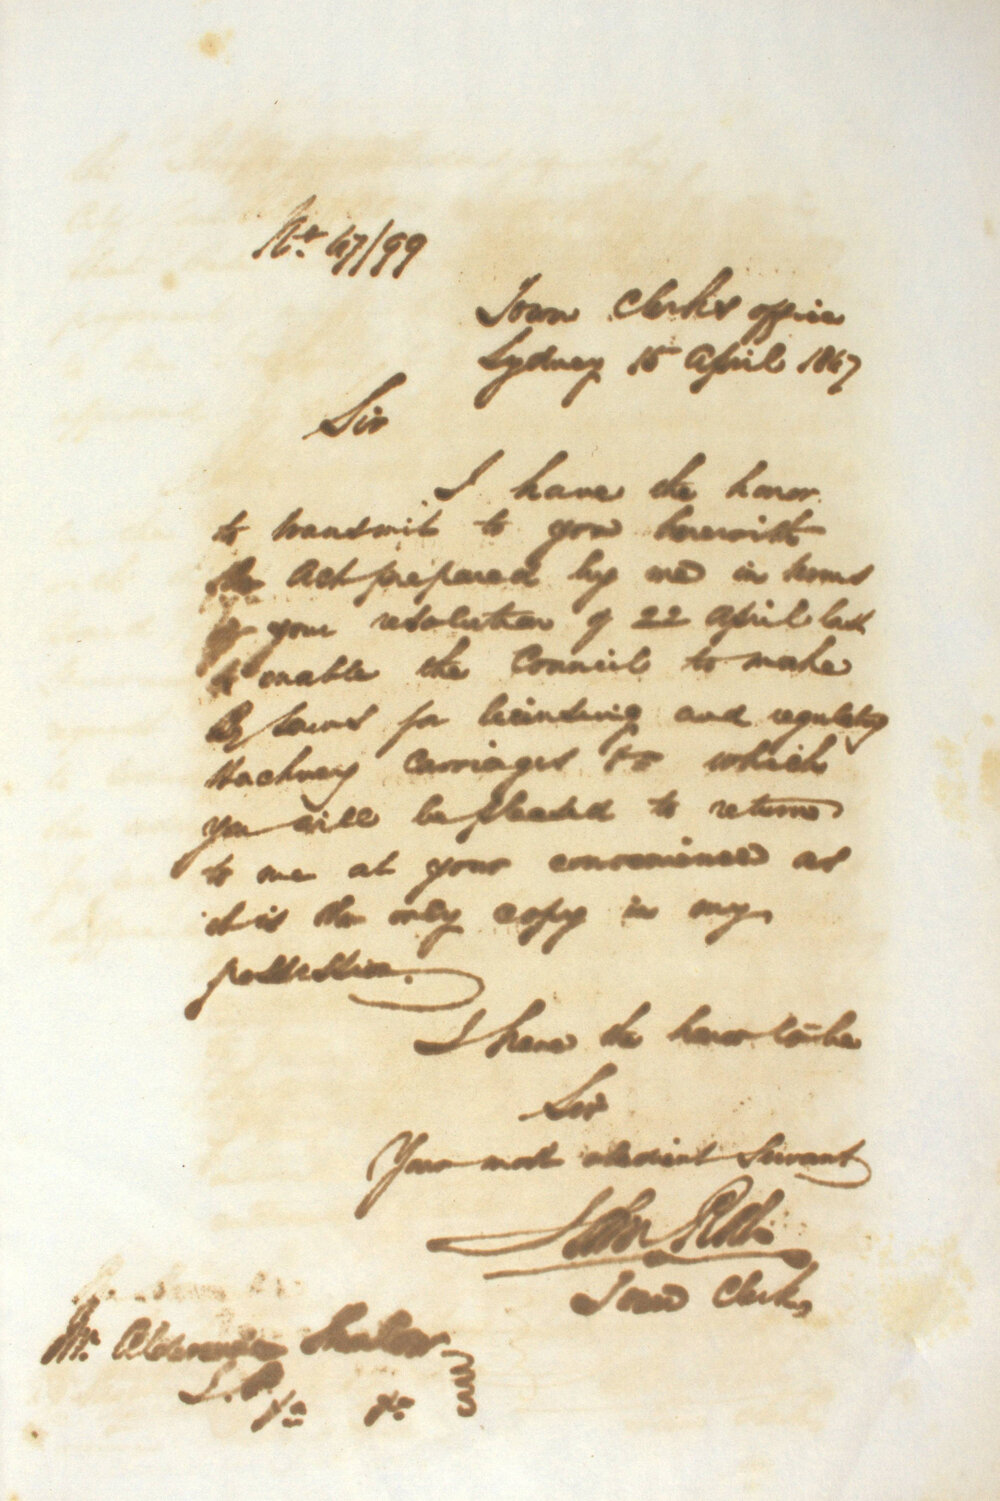 No. 47/99
Town Clerk's office
Sydney 15 April 1847
Sir
I have the honor
to transmit to you herewith
the Act prepared by me in terms
of your resolution of 22 April last
to enable the Council to make
By laws for licensing and regulating
Hackney Carriages &c which
you will be pleased to return
to me at your convenience as
it is the only copy in my
possession.
I have the honor to be
Sir
Your most obedient Servant
John
Town Clerk
Mr. Alderman
&c &c